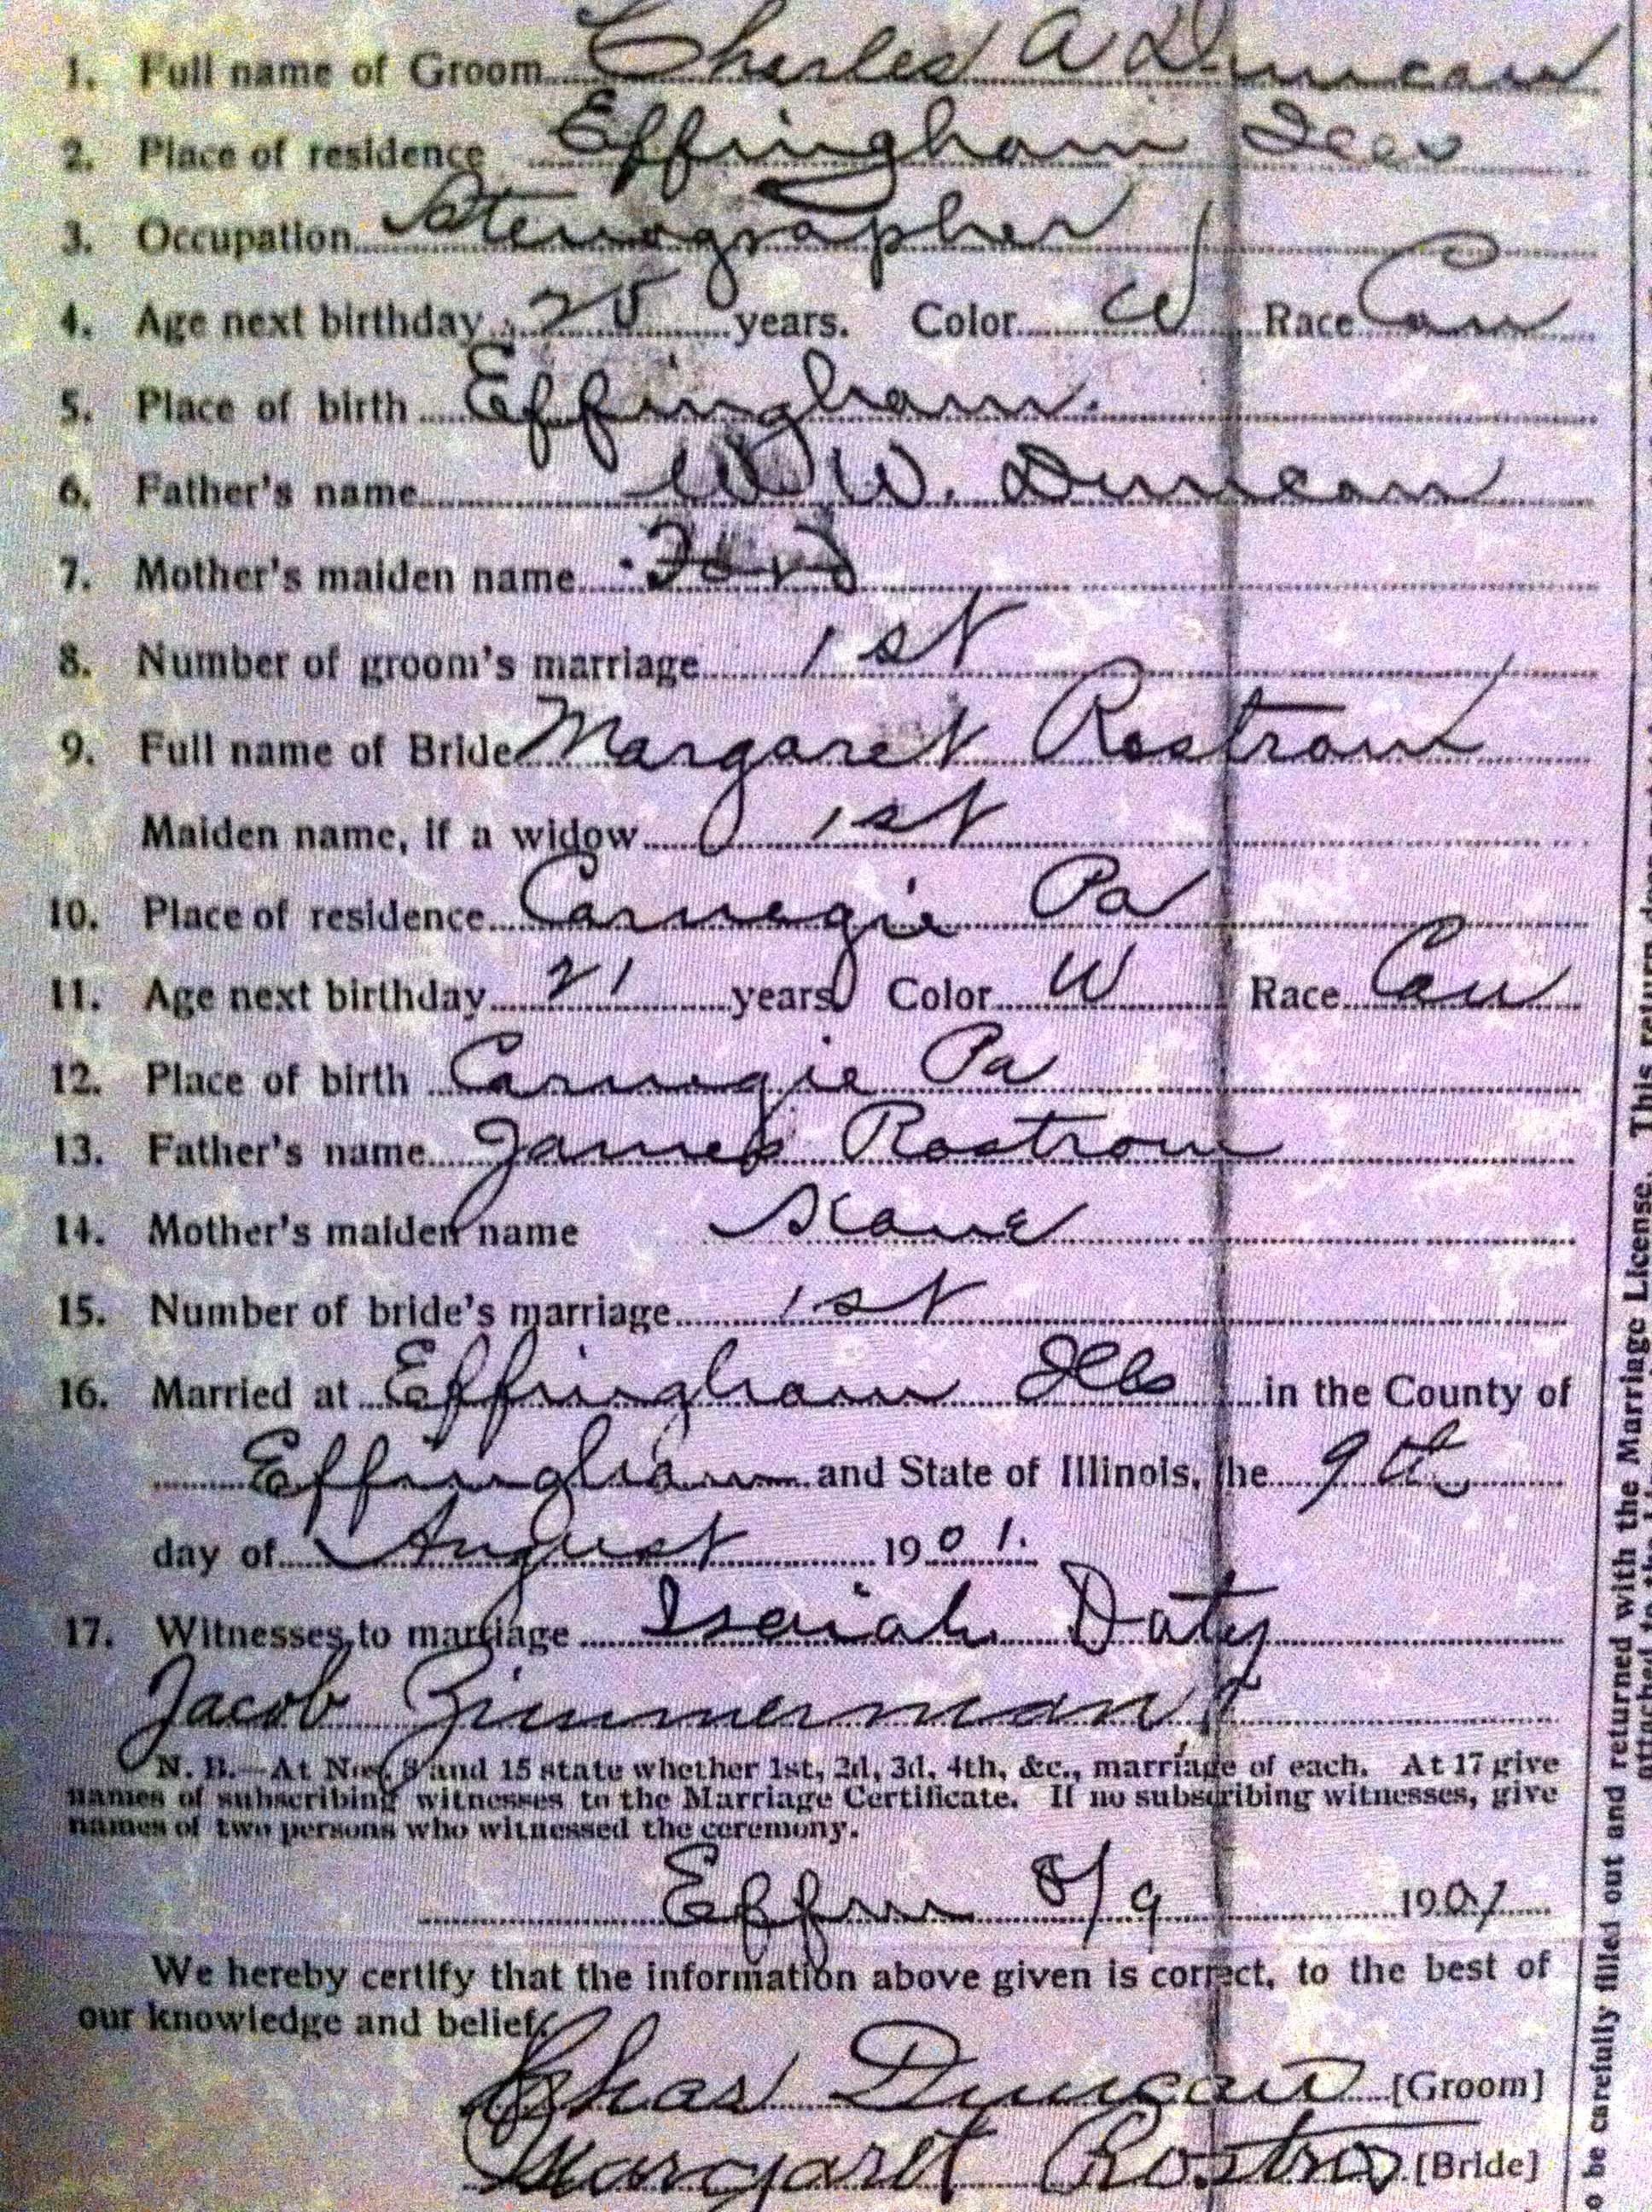 1. Full name of Groom Charles A Duncan
2. Place of residence Effingham Ills
3. Occupation Stenographer
4. Age next birthday 25 years. Color W Race Cau
5. Place of birth Effingham.
6. Father's name W W. Duncan
7. Mother's maiden name Ford
8. Number of groom's marriage 1st
9. Full name of Bride Margaret Rostron
Maiden name, if a widow 1st
10. Place of residence Carnegie Pa
11. Age next birthday 21 years Color W Race Cau
12. Place of birth Carnegie Pa
13. Father's name James Rostron
14. Mother's maiden name
15. Number of bride's marriage 1st
16. Married at Effingham Ills in the County of
Effingham and State of Illinois, the 9th
day of August 1901.
17. Witnesses to marriage Isaiah Daty
Jacob Zimmerman
N. B.—At Nos. 8 and 15 state whether 1st, 2d, 3d, 4th, &c., marriage of each. At 17 give
names of subscribing witnesses to the Marriage Certificate. If no subscribing witnesses, give
names of two persons who witnessed the ceremony.
8/9 1901
We hereby certify that the information above given is correct, to the best of
our knowledge and belief.
Chas Duncan [Groom]
Margaret Rostron [Bride]
be carefully filled out and returned with the Marriage License. This return